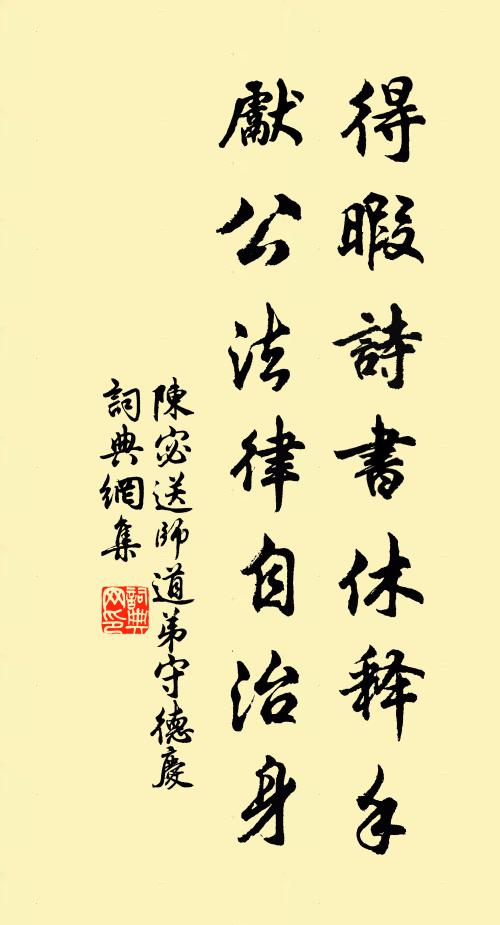 得暇詩書休释手
獻公法律自治身
陳宓送師道弟守德慶
詞典網集
詞典网印